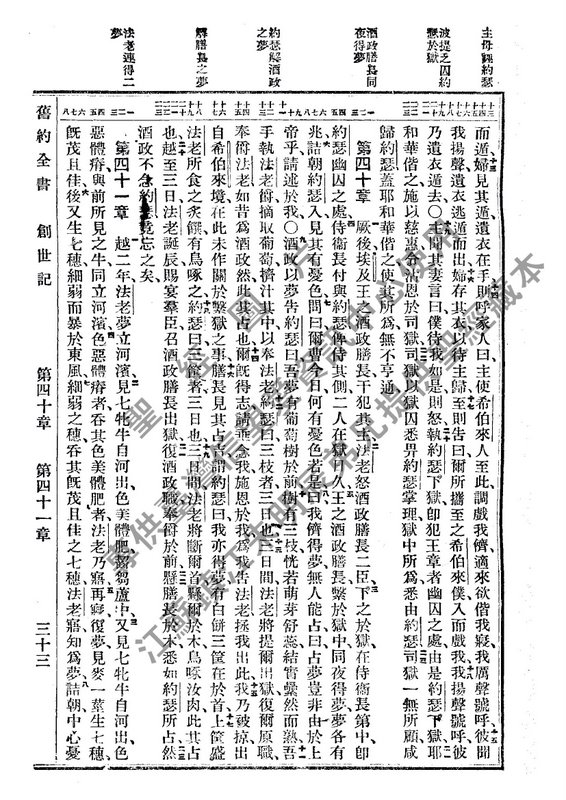 主母誣約瑟
波提乏囚約
瑟於獄
酒政膳長同
夜得夢
約瑟解酒政
之夢
解膳長之夢
法老連得二
夢
而遁婦見其遁遺衣在手則呼家人曰主使希伯來人至此調戲我儕適來欲偕我寢我厲聲號呼彼聞
我揚聲遺衣逃遁而出婦存其衣以待主歸至則告曰爾所攜至之希伯來僕入而戲我我揚聲號呼彼
乃遺衣遁去〇主聞其妻言曰僕待我如是則怒執約瑟下獄卽犯王章者幽囚之處由是約瑟下獄耶
和華偕之施以慈惠令沾恩於司獄司獄以獄囚悉畀約瑟掌理獄中所爲悉由約瑟司獄一無所顧咸
歸約瑟蓋耶和華偕之使其所爲無不亨通
第四十章 厥後埃及王之酒政膳長干犯其主法老怒酒政膳長二臣下之於獄在侍衞長第中卽
約瑟幽囚之處侍衞長付與約瑟俾侍其側二人在獄久王之酒政膳長繫於獄中同夜得夢夢各有
兆詰朝約瑟入見其有憂色問曰爾曹今日何有憂色若是曰我儕得夢無人能占曰占夢豈非由於上
帝乎請述於我〇酒政以夢告約瑟曰吾夢有葡萄樹於前樹有三枝恍若萌芽舒蕊結實纍然而熟吾
手執法老爵摘取葡萄擠汁其中以奉法老約瑟曰三枝者三日也三日間法老將提爾出獄復爾原職
奉爵法老如昔爲酒政然此其占也爾旣得志請垂念我施恩於我爲我告法老拯我出此我乃被掠出
自希伯來境在此未作關於繫獄之事膳長見其占得解謂約瑟曰我亦得夢有白餅三筐在於首上筐盛
法老所食之炙饌有鳥啄之約瑟曰三筐者三日也三日間法老將斷爾首縣爾於木鳥啄汝肉此其占
也越至三日法老誕辰賜宴羣臣召酒政膳長出獄復酒政職奉爵於前懸膳長於木悉如約瑟所占然
酒政不念約瑟竟忘之矣
第四十一章 越二年法老夢立河濱見七牝牛自河出色美體肥芻蘆中又見七牝牛自河出色
惡體瘠與前所見之牛同立河濱色惡體瘠者吞其色美體肥者法老乃寤再寢復夢見麥一莖生七穗
旣茂且佳後又生七穗細弱而暴於東風細弱之穗吞其旣茂且佳之七穗法老寤知爲夢詰朝中心憂
舊約全書 創世記 第四十章 第四十一章 三十三